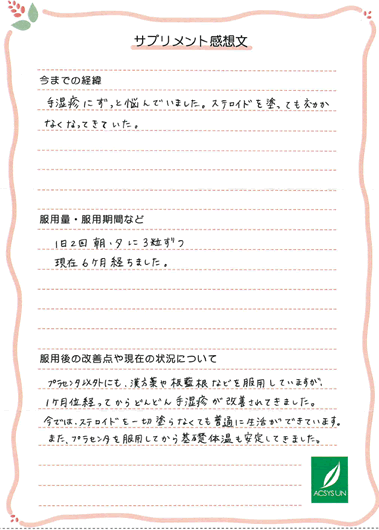 サプリメント感想文
今までの経緯
手湿疹にずっと悩んでいました。ステロイドを塗っても効か
なくなってきていた。
服用量・服用期間など
1日2回 朝・夕に3粒ずつ
現在6ケ月経ちました。
服用後の改善点や現在の状況について
プラセンタ以外にも、漢方薬や板藍根などを服用していますが、
1ケ月位経ってからどんどん手湿疹が改善されてきました。
今では、ステロイドを一切塗らなくても普通に生活ができています。
また、プラセンタを服用してから基礎体温も安定してきました。
ACSYS UN